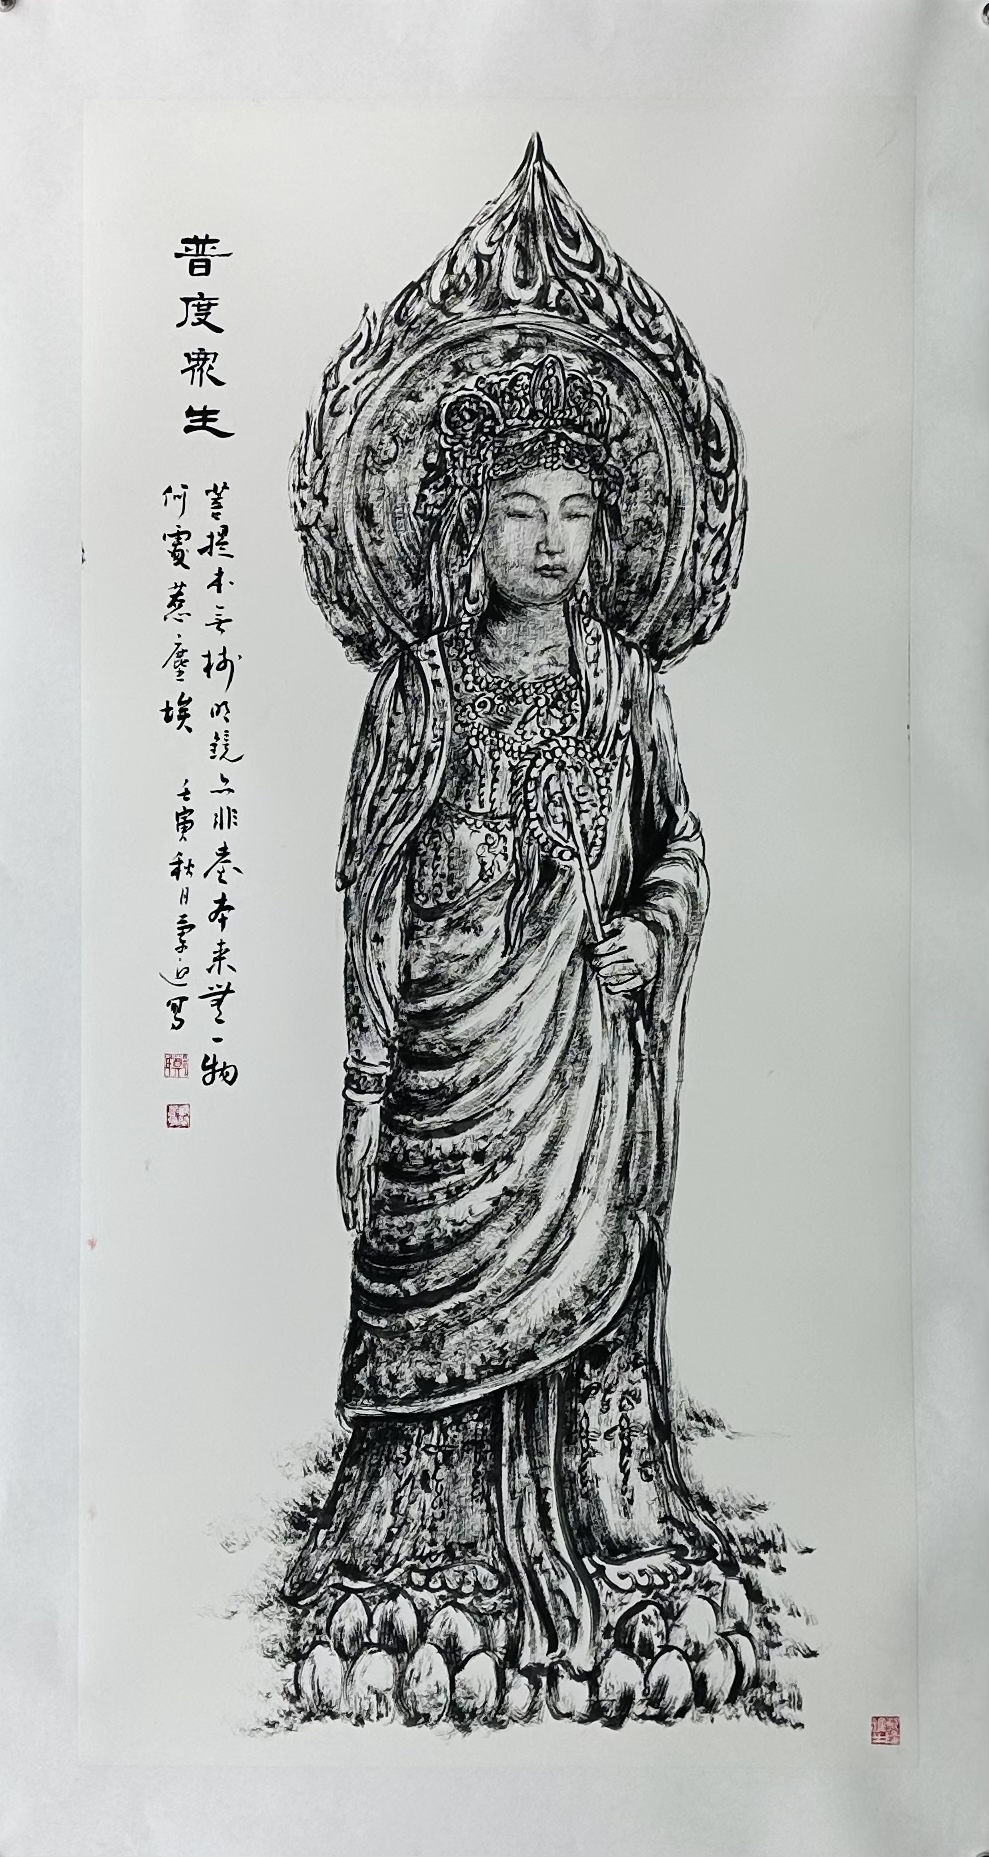 普度眾生
菩提本无树明镜亦非臺本来無一物
何處惹塵埃
壬寅秋月
写